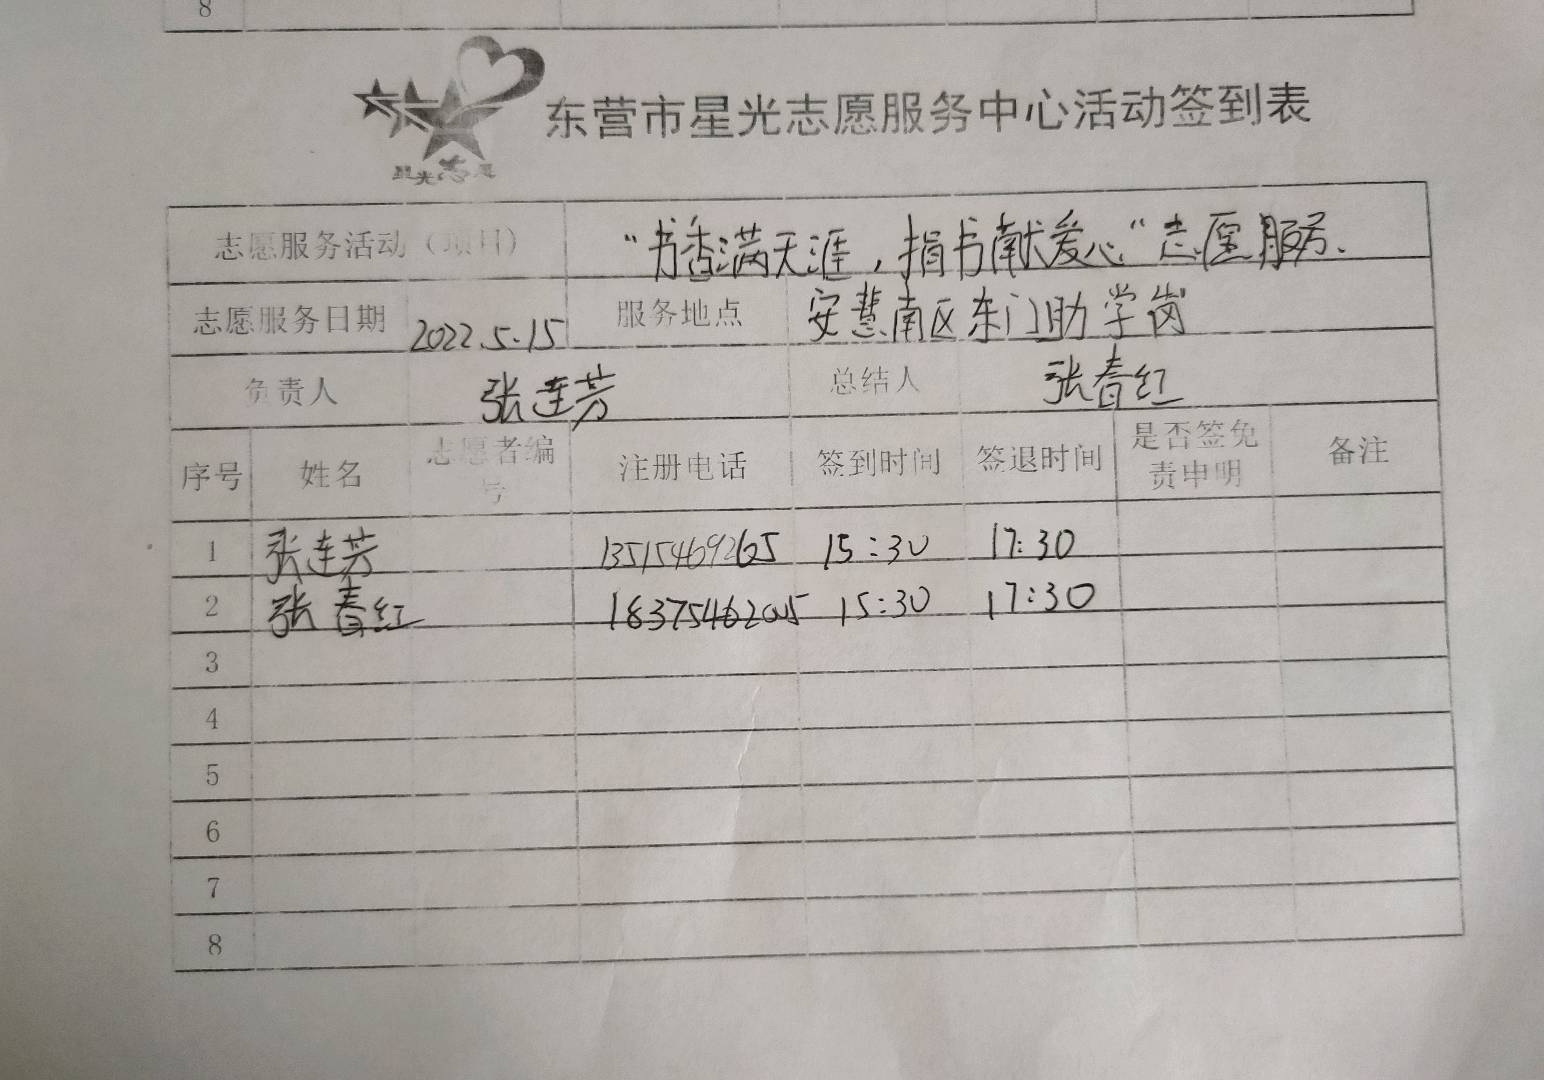 8
星光志愿
东营市星光志愿服务中心活动签到表
志愿服务活动（项目） “书香满天涯，捐书献爱心”志愿服务.
志愿服务日期 2022.5.15 服务地点 安慧南区东门助学岗
负责人 张连芳 总结人 张春红
序号 姓名 志愿者编号 注册电话 签到时间 签退时间 是否签免责申明 备注
1 张连芳 13515469265 15:30 17:30
2 张春红 15:30 17:30
3
4
5
6
7
8